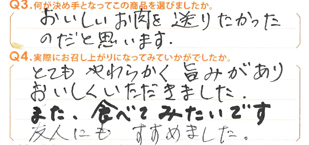 Q3.何が決め手となってこの商品を選びましたか。
おいしいお肉を送りたかった
のだと思います.
Q4.実際にお召し上がりになってみていかがでしたか。
とても やわらかく 旨みがあり
おいしくいただきました.
また、食べてみたいです
友人にも すすめました。